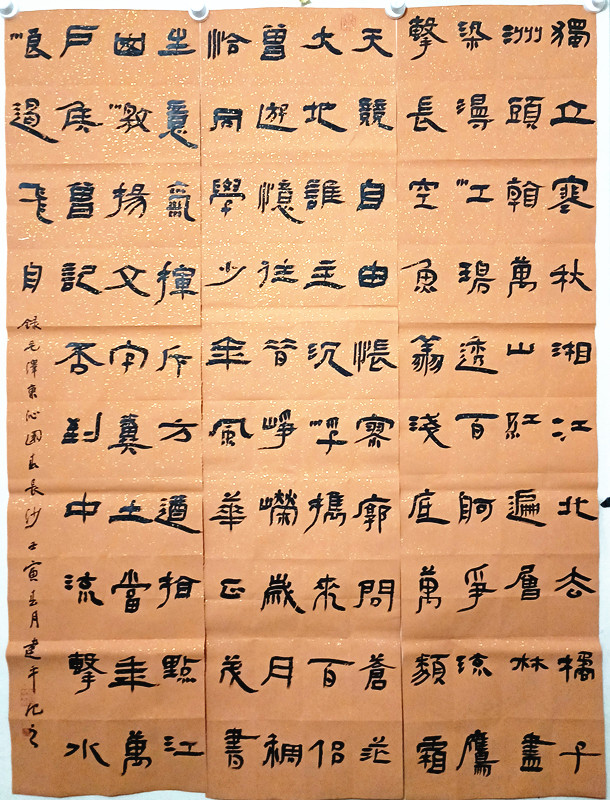 獨立寒秋湘江北去橘子
洲頭看萬山紅遍層林盡
染漫江碧透百舸爭流鷹
擊長空魚翔淺底萬類霜
天競自由悵寥廓問蒼茫
大地誰主沉浮攜來百侶
曾遊憶往昔崢嶸歲月稠
恰同學少年風華正茂書
生意氣揮斥方遒指點江
山激揚文字糞土當年萬
戶侯曾記否到中流擊水
浪遏飛舟
錄毛澤東沁園春長沙壬寅春月建平記之